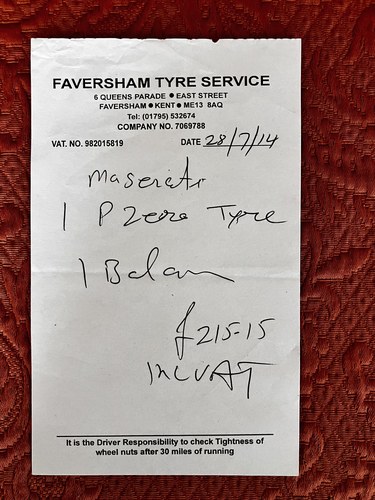 FAVERSHAM TYRE SERVICE
6 QUEENS PARADE ● EAST STREET
FAVERSHAM ● KENT ● ME13 8AQ
Tel: (01795) 532674
COMPANY NO. 7069788
VAT. NO. 982015819 DATE 28/7/14
Maserati
1 P Zero Tyre
1 Balan
£215-15
INC VAT
It is the Driver Responsibility to check Tightness of
wheel nuts after 30 miles of running